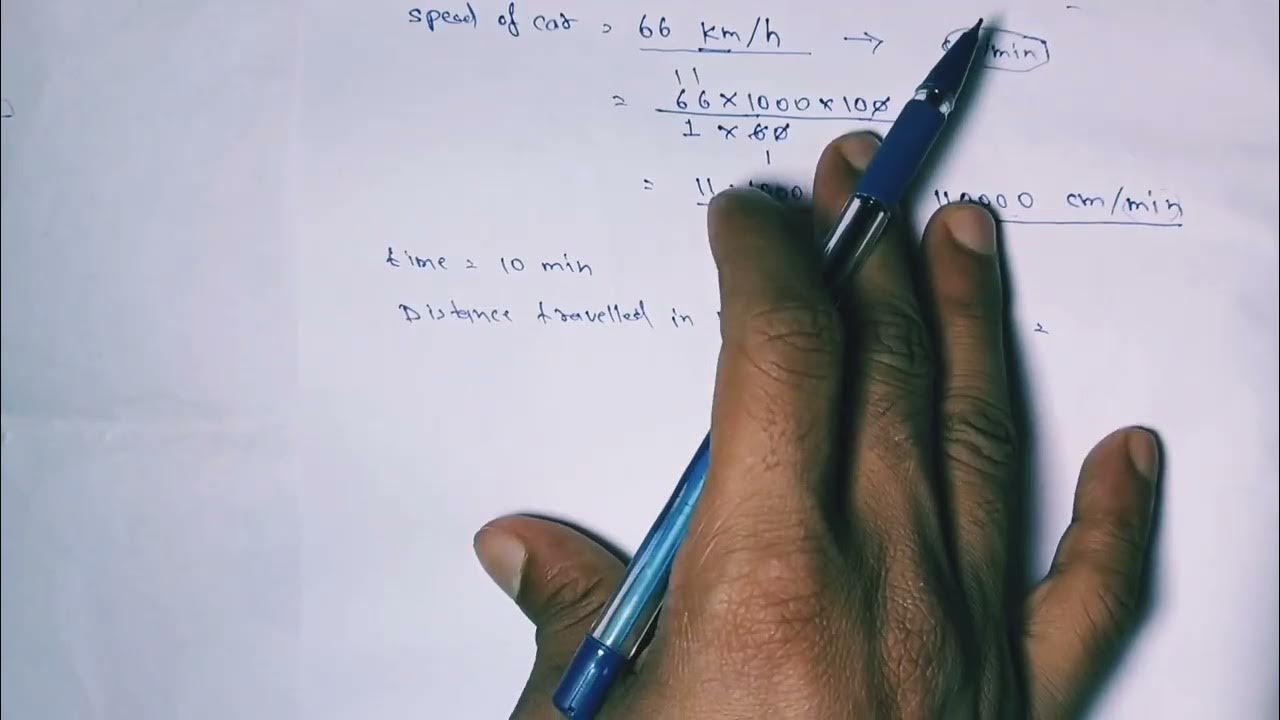 speed of car = 66 km/h → /min
11
= 66 × 1000 × 100
1 × 60
1
= 11 · 1000 110000 cm/min
time = 10 min
Distance travelled in =